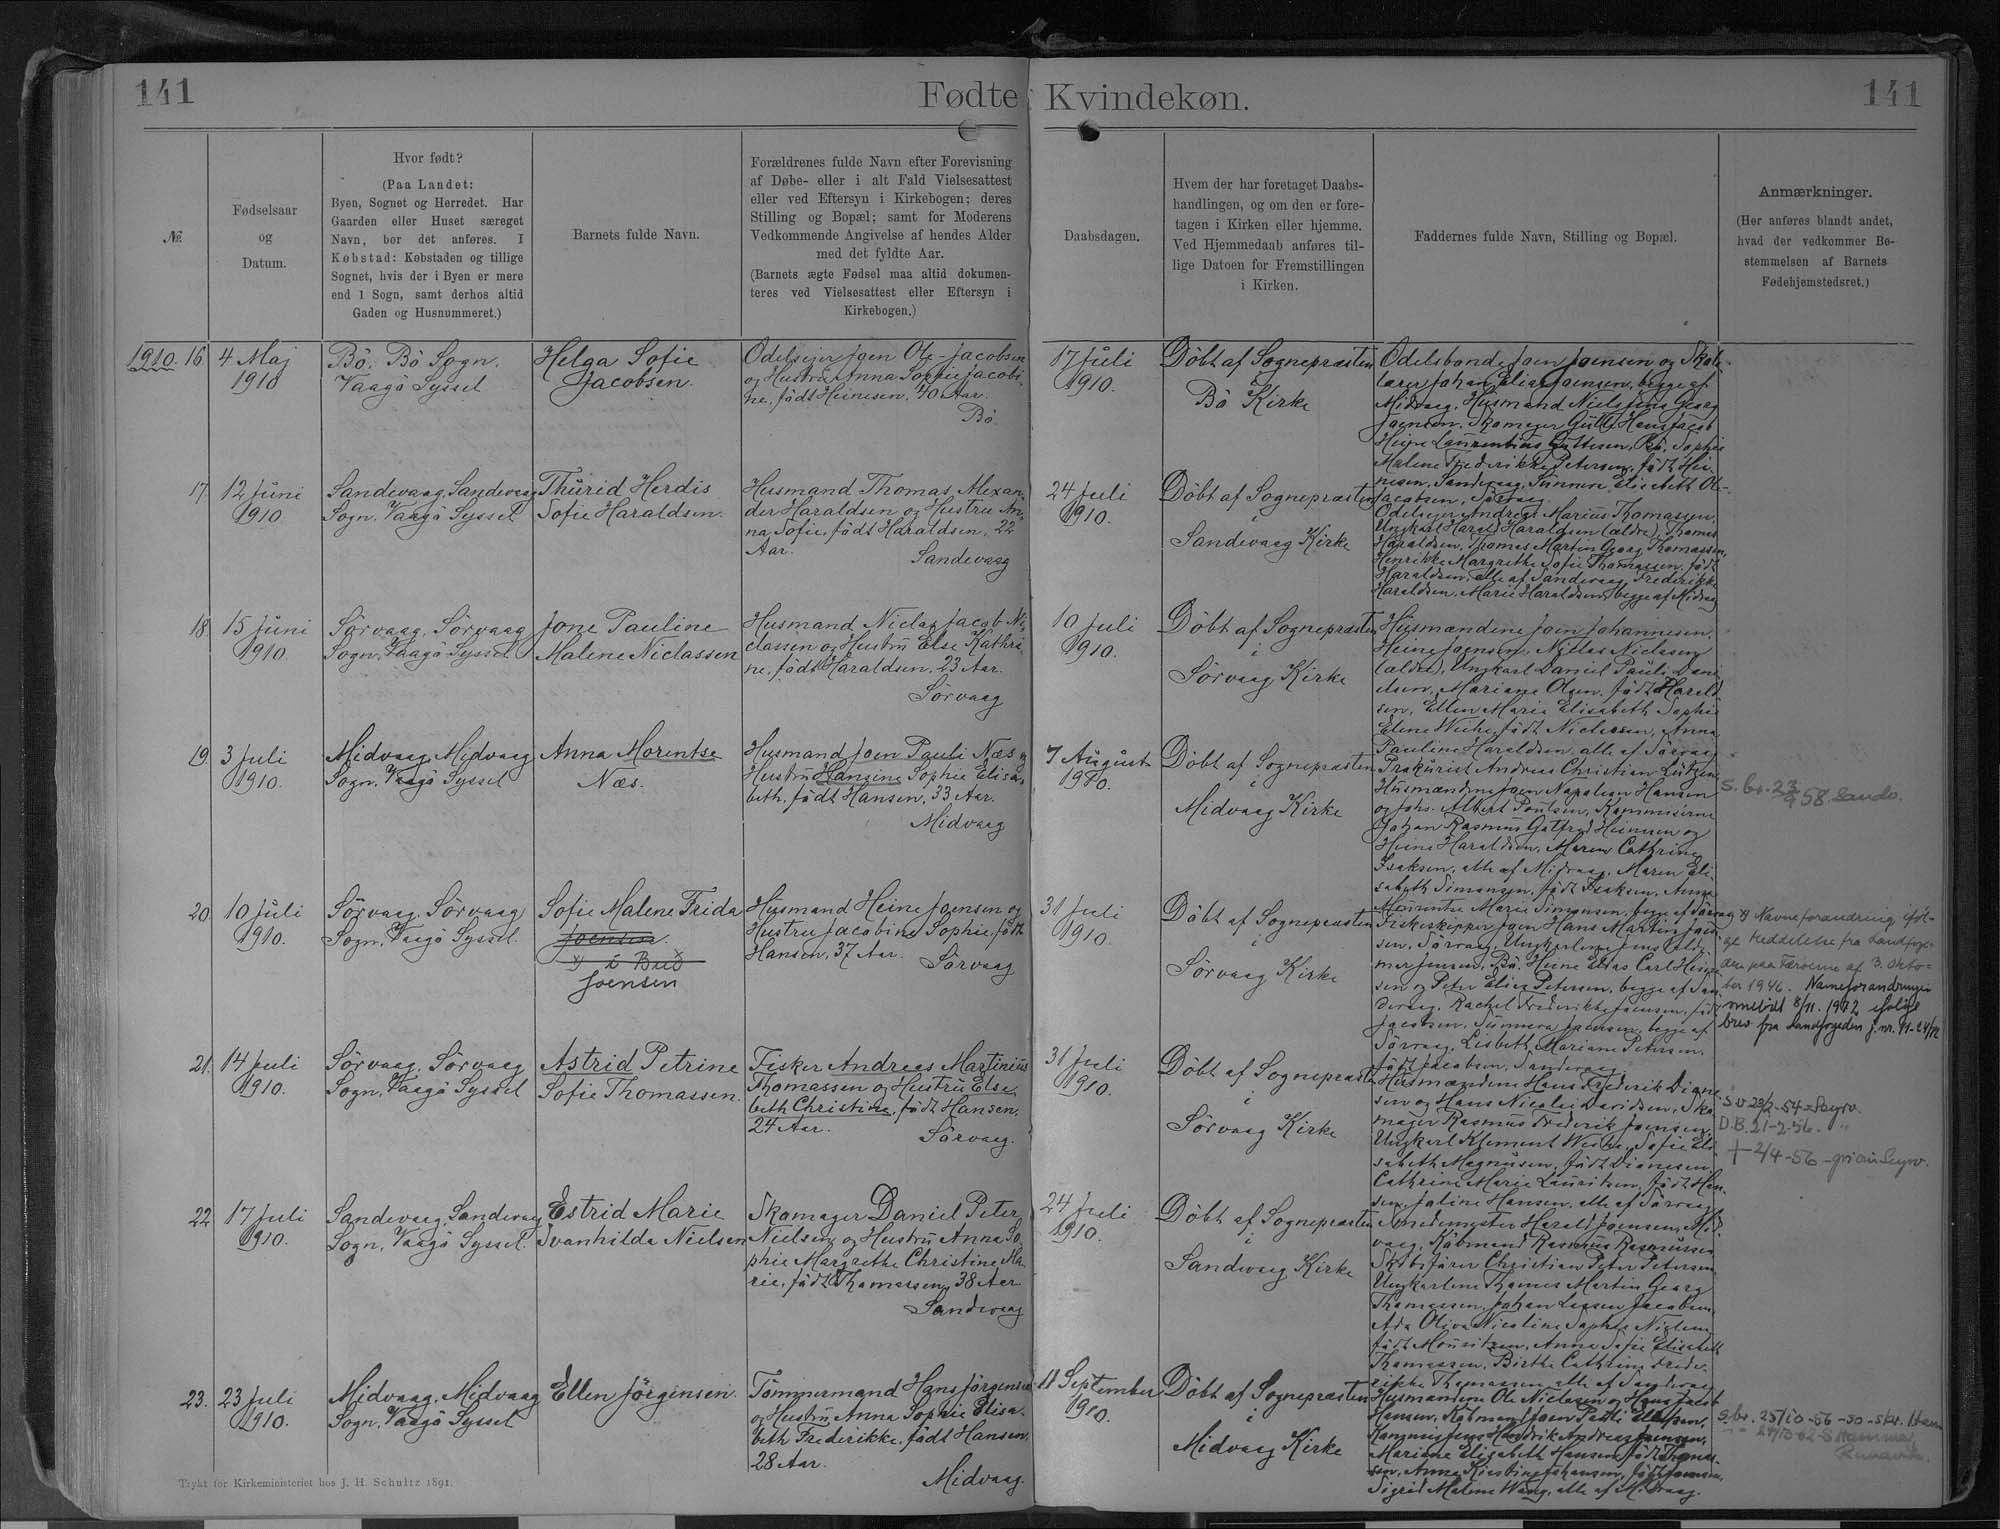 141
Fødte
Kvindekøn.
141
№
Fødselsaar
og
Datum.
Hvor født?
(Paa Landet:
Byen, Sognet og Herredet. Har
Gaarden eller Huset særeget
Navn, bør det anføres. I
Købstad: Købstaden og tillige
Sognet, hvis der i Byen er mere
end 1 Sogn, samt derhos altid
Gaden og Husnummeret.)
Barnets fulde Navn.
Forældrenes fulde Navn efter Forevisning
af Døbe- eller i alt Fald Vielsesattest
eller ved Eftersyn i Kirkebogen; deres
Stilling og Bopæl; samt for Moderens
Vedkommende Angivelse af hendes Alder
med det fyldte Aar.
(Barnets ægte Fødsel maa altid dokumen-
teres ved Vielsesattest eller Eftersyn i
Kirkebogen.)
Daabsdagen.
Hvem der har foretaget Daabs-
handlingen, og om den er fore-
tagen i Kirken eller hjemme.
Ved Hjemmedaab anføres til-
lige Datoen for Fremstillingen
i Kirken.
Faddernes fulde Navn, Stilling og Bopæl.
Anmærkninger.
(Her anføres blandt andet,
hvad der vedkommer Be-
stemmelsen af Barnets
Fødehjemstedsret.)
1910. 16
4 Maj
1910
Bö, Bö Sogn,
Vaagö Syssel
Helga Sofie
Jacobsen.
Odelsejer Joen Ole-Jacobsen
og Hustru Anna Sophie Jacobi-
ne, födt Heinesen, 40 Aar.
Bö.
17 Juli
1910.
Döbt af Sognepræsten
i
Bö Kirke
Odelsbonde Joen Joensen og Skole-
lærer Johan Elias Joensen, begge af
Midvaag, Husmand Niels Jens Georg
Joensen, Skomager Gutti Hans Jacob
Heine Laurentius Guttesen, Bö, Sophie
Malene Frederikke Petersen, födt Hei-
nesen, Sandevaag, Sunneva Elisabeth Ole-
Jacobsen, Sörvaag.
17.
12 Juni
1910
Sandevaag, Sandevaag
Sogn, Vaagö Syssel
Thurid Herdis
Sofie Haraldsen.
Husmand Thomas Alexan-
der Haraldsen og Hustru An-
na Sofie, födt Haraldsen, 22
Aar.
Sandevaag
24 Juli
1910.
Döbt af Sognepræsten
i
Sandevaag Kirke
Odelsejer Andreas Marius Thomassen,
Ungkarl Harald Haraldsen (ældre), Thomas
Haraldsen, Thomas Martin Georg Thomassen,
Henrikke Margrethe Sofie Thomassen, födt
Haraldsen, alle af Sandevaag, Frederikke
Haraldsen, Marie Haraldsen, begge af Midvaag
18.
15 Juni
1910.
Sörvaag, Sörvaag
Sogn, Vaagö Syssel
Jone Pauline
Malene Niclassen
Husmand Niclas Jacob Ni-
classen og Hustru Else Kathri-
ne, födt Haraldsen, 23 Aar.
Sörvaag
10 Juli
1910.
Döbt af Sognepræsten
i
Sörvaag Kirke
Husmændene Joen Johannesen,
Heine Joensen, Niclas Niclasen
(ældre), Ungkarl Daniel Pauli Dani-
elsen, Mariane Olsen, födt Harald-
sen, Ellen Marie Elisabeth Sophie
Elene Weihe, födt Niclassen, Anna
Pauline Haraldsen, alle af Sörvaag
19.
3 Juli
1910.
Midvaag, Midvaag
Sogn, Vaagö Syssel
Anna Morentse
Næs.
Husmand Joen Pauli Næs og
Hustru Hansine Sophie Elisa-
beth, födt Hansen, 33 Aar.
Midvaag
7 August
1910.
Döbt af Sognepræsten
i
Midvaag Kirke
Prokurist Andreas Christian Lützen
Husmændene Joen Napoleon Hansen
og Johs. Albert Poulsen,
Johan Rasmus Gutfred Hansen og
Heine Haraldsen, Maren Cathrine
Isaksen, alle af Midvaag, Maren Eli-
sabeth Simonsen, födt Isaksen, Anna
Mourentse Marie Simonsen, begge af Sörvaag
S. br. 23/9 58 Sandv.
20.
10 Juli
1910.
Sörvaag, Sörvaag
Sogn, Vaagö Syssel.
Sofie Malene Frida
Joensen.
x) í Búð
Joensen
Husmand Heine Joensen og
Hustru Jacobine Sophie, födt
Hansen, 37 Aar.
Sörvaag
31 Juli
1910.
Döbt af Sognepræsten
i
Sörvaag Kirke
Fiskeskipper Joen Hans Martin Joen-
sen, Sörvaag, Ungkarlene Jens Old-
mar Jensen, Bö, Heine Elias Carl Heine-
sen og Peter Elias Petersen, begge af San-
devaag, Rachel Frederikke Joensen, födt
Jacobsen, Sunneva Joensen, begge af
Sörvaag, Lisbeth Mariane Petersen,
födt Jacobsen, Sandevaag
x) Navneforandring iföl-
ge Meddelelse fra Landfoge-
den paa Færøerne af 3. Okto-
ber 1946. Navneforandringen
omstødt 8/11. 1972 ifølge
brev fra Landfogeden j. nr. 11-24/72
21.
14 Juli
1910.
Sörvaag, Sörvaag
Sogn, Vaagö Syssel
Astrid Petrine
Sofie Thomassen.
Fisker Andreas Martinius
Thomassen og Hustru Else-
beth Christine, födt Hansen,
24 Aar.
Sörvaag.
31 Juli
1910.
Döbt af Sognepræsten
i
Sörvaag Kirke
Husmændene Hans Frederik Diane-
sen og Hans Nicolai Davidsen, Sko-
mager Rasmus Frederik Joensen,
Ungkarl Klement Weihe, Sofie Eli-
sabeth Magnusen, födt Dianesen,
Cathrine Marie Lauritsen, födt Han-
sen, Jaline Hansen, alle af Sörvaag
S v 23/2-54 Søyrv.
D.B. 21-2-56. "
+ 2/4-56
22
17 Juli
1910.
Sandevaag, Sandevaag
Sogn, Vaagö Syssel.
Estrid Marie
Svanhilda Nielsen
Skomager Daniel Peter
Nielsen og Hustru Anna So-
phie Margrethe Christine Ma-
rie, födt Thomassen, 38 Aar
Sandevaag
24 Juli
1910.
Döbt af Sognepræsten
i
Sandevaag Kirke
Smedemester Harald Joensen, Mid-
vaag, Købmand Rasmus Rasmussen
Skibsförer Christian Peter Petersen
Ungkarlene Thomas Martin Georg
Thomassen, Johan Lassen Jacobsen,
Ada Oliva Nicoline Sophie Nielsen
födt Mouritzen, Anna Sofie Elisabeth
Thomassen, Birthe Cathrine Frede-
rikke Thomassen, alle af Sandevaag
23.
23 Juli
1910.
Midvaag, Midvaag
Sogn, Vaagö Syssel
Ellen Jörgensen.
Tömmermand Hans Jörgensen
og Hustru Anna Sophie Elisa-
beth Frederikke, födt Hansen,
28 Aar.
Midvaag.
11 September
1910.
Döbt af Sognepræsten
i
Midvaag Kirke
Husmændene Ole Niclasen og Hans Jacob
Hansen, Købmand Joen Pauli Ellefsen,
Hendrik Andreas Joensen,
Mariane Elisabeth Hansen, födt Thomas-
sen, Anna Kirstine Johansen, födt Joensen,
Sigrid Malene Wang, alle af Midvaag.
S. br. 25/10-56
Trykt for Kirkeministeriet hos J. H. Schultz 1891.